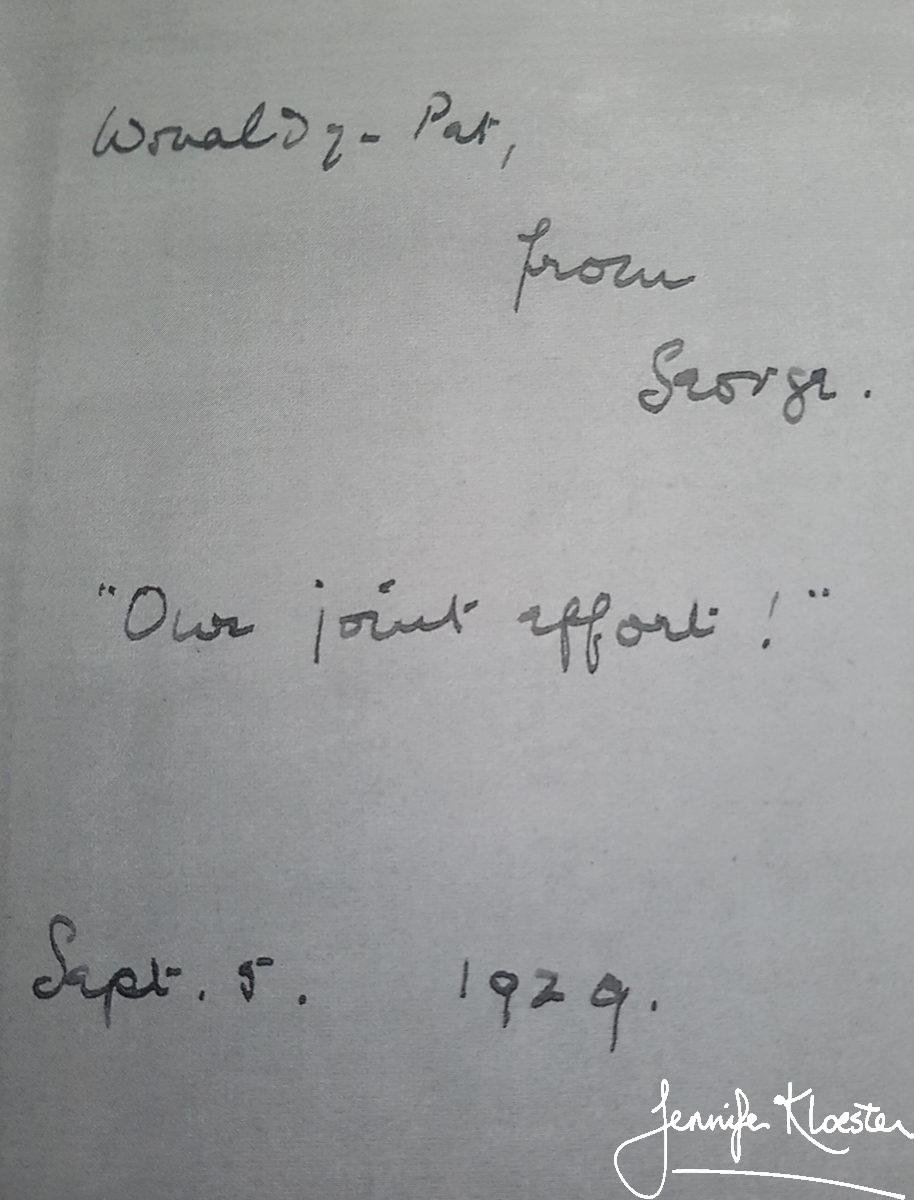 Pat,
from
George.
"Our joint effort!"
Sept. 5. 1929.
Jennifer Kloester